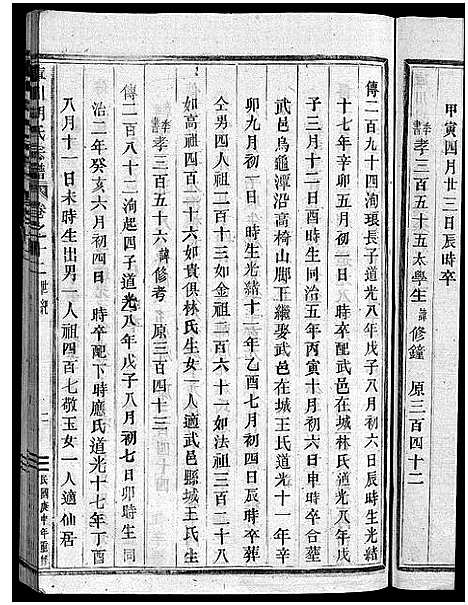 甲寅四月廿三日辰時卒
季書孝三百五十五太學生諱修鐘　原三百四十二
傳二百九十四洵琅長子道光八年戊子八月初六日辰時生光緒
十七年辛卯五月初一日　時卒配武邑在城林氏道光八年戊
子三月十二日戌時生同治五年丙寅十月初六日申時卒合塟
武邑烏龜潭沿高椅山脚王繼娶武邑在城王氏道光十一年辛
卯九月初一日　時生光緒十一年乙酉七月初四日辰時卒葬
仝男四人祖二百十三如金祖二百六十一如法祖三百二十八
如高祖四百一十六如貴俱林氏生女一人適武邑縣城王氏生
季書孝三百五十六諱修考　原三百四十三
傳二百八十二洵起四子道光八年戊子八月初七日卯時生同
治二年癸亥六月初四日　時卒配下時應氏道光十七年丁酉
八月十一日未時生出男一人祖四百七敬玉女一人適仙居
胡氏宗譜
卷之
世紀
民國庚申年重修